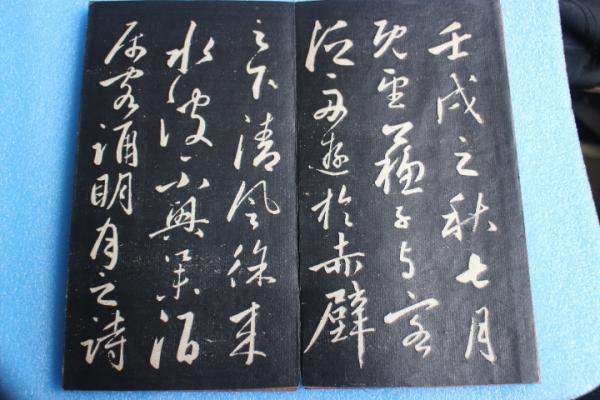 壬戌之秋七月
既望蘇子与客
泛舟遊於赤壁
之下清風徐来
水波不興舉酒
属客誦明月之詩